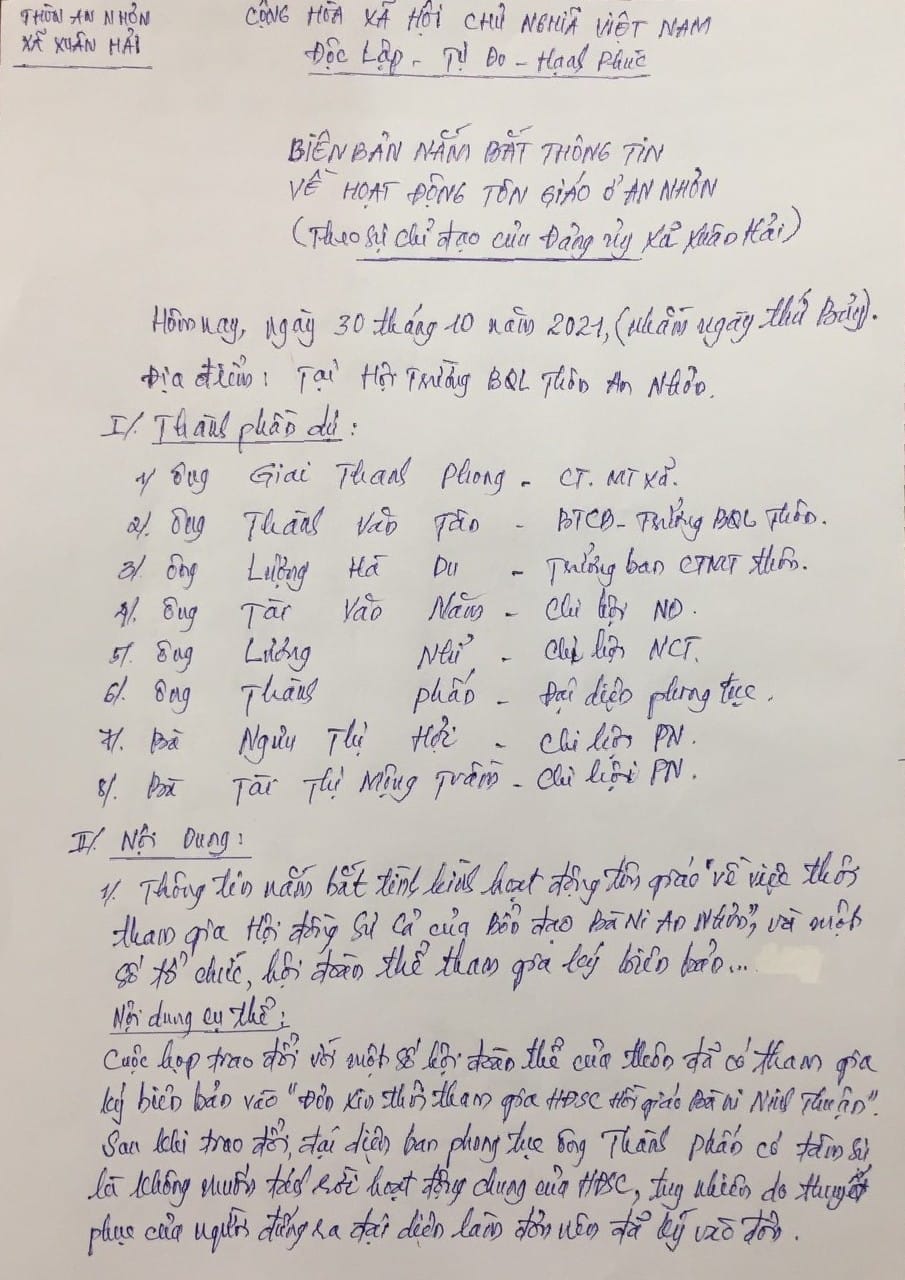 THÔN AN NHƠN
XÃ XUÂN HẢI
CỘNG HÒA XÃ HỘI CHỦ NGHĨA VIỆT NAM
Độc Lập - Tự Do - Hạnh Phúc
BIÊN BẢN NẮM BẮT THÔNG TIN
VỀ HOẠT ĐỘNG TÔN GIÁO Ở AN NHƠN
(Theo sự chỉ đạo của Đảng ủy xã Xuân Hải)
Hôm nay, ngày 30 tháng 10 năm 2021, (nhằm ngày thứ Bảy).
Địa điểm: Tại Hội Trường BQL Thôn An Nhơn.
I/. Thành phần dự:
1/ Ông Giai Thanh Phong - CT. MT xã.
2/. Ông Thành Văn Tào - BTCB - Trưởng BQL Thôn.
3/. Ông Lượng Hà Du - Trưởng ban CTMT thôn.
4/. Ông Tài Văn Năm - Chi hội ND.
5/. Ông Lương Như - Chi hội NCT.
6/. Ông Thành Phấn - Đại diện phong tục.
7/. Bà Ngưu Thị Hợi - Chi hội PN.
8/. Bà Tài Thị Mộng Trầm - Chi hội PN.
II/. Nội Dung:
1/. Thông tin nắm bắt tình hình hoạt động tôn giáo "về việc thôi
tham gia Hội đồng Sư Cả của Bổn đạo Bà Ni An Nhơn", và một
số tổ chức, hội đoàn thể tham gia ký biên bản...
Nội dung cụ thể:
Cuộc họp trao đổi với một số hội đoàn thể của thôn đã có tham gia
ký biên bản vào "Đơn xin thôi tham gia HĐSC Hồi giáo Bà Ni Ninh Thuận".
Sau khi trao đổi, đại diện ban phong tục ông Thành Phấn có tâm sự
là không muốn tách rời hoạt động chung của HĐSC, tuy nhiên do thuyết
phục của người đứng ra đại diện làm đơn nên đã ký vào đơn.